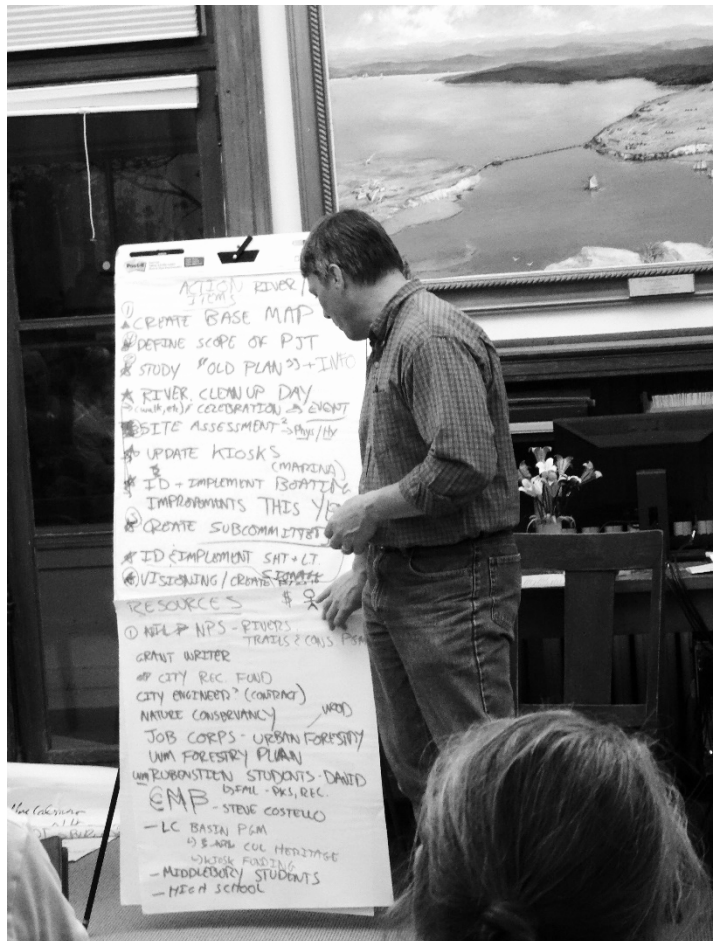 ACTION RIVER
ITEMS
① CREATE BASE MAP
DEFINE SCOPE OF PJT
STUDY "OLD PLAN" + INFO
RIVER CLEAN UP DAY
CELEBRATION → EVENT
SITE ASSESSMENT → Phys/Hy
UPDATE KIOSKS
(MARINA)
ID + IMPLEMENT BOATING
IMPROVEMENTS THIS
CREATE SUBCOMMITTEE
ID & IMPLEMENT SHT + LT.
VISIONING / CREATE
RESOURCES $
① NPS - RIVERS
TRAILS & CONS PGM
GRANT WRITER
CITY REC. FUND
CITY ENGINEER? (CONTRACT)
NATURE CONSERVANCY
JOB CORPS - URBAN FORESTRY
FORESTRY PLAN
RUBENSTIEN STUDENTS - DAVID
- PKS, REC.
- STEVE COSTELLO
- LC BASIN PGM
CUL HERITAGE
KIOSK FUNDING
- MIDDLEBURY STUDENTS
- HIGH SCHOOL